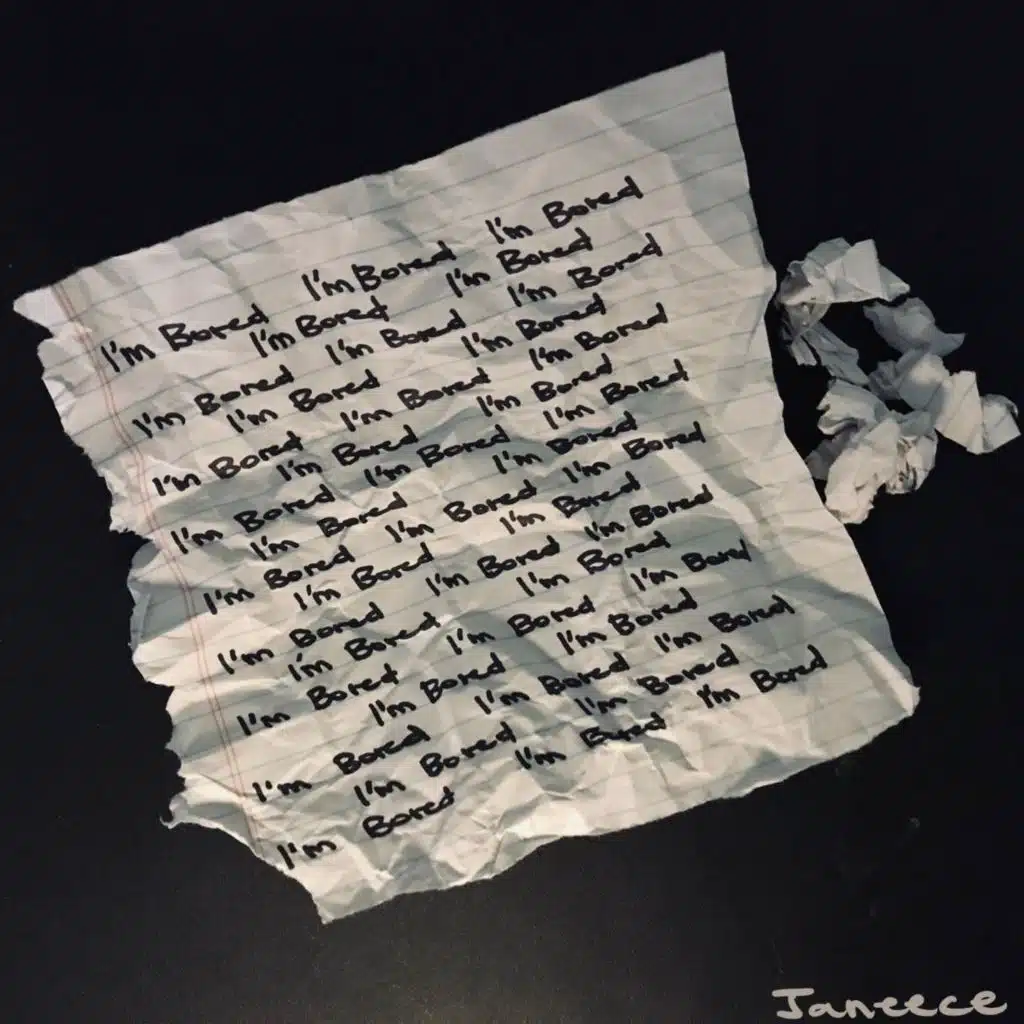 I'm Bored I'm Bored I'm Bored
I'm Bored I'm Bored
I'm Bored I'm Bored I'm Bored
I'm Bored I'm Bored
I'm Bored I'm Bored I'm Bored
I'm Bored I'm Bored
I'm Bored I'm Bored I'm Bored
I'm Bored I'm Bored
I'm Bored I'm Bored I'm Bored
I'm Bored I'm Bored
I'm Bored I'm Bored I'm Bored
I'm Bored I'm Bored
I'm Bored I'm Bored I'm Bored
I'm Bored I'm Bored
I'm Bored I'm Bored I'm Bored
I'm Bored I'm Bored
I'm Bored I'm Bored I'm Bored
Janeece